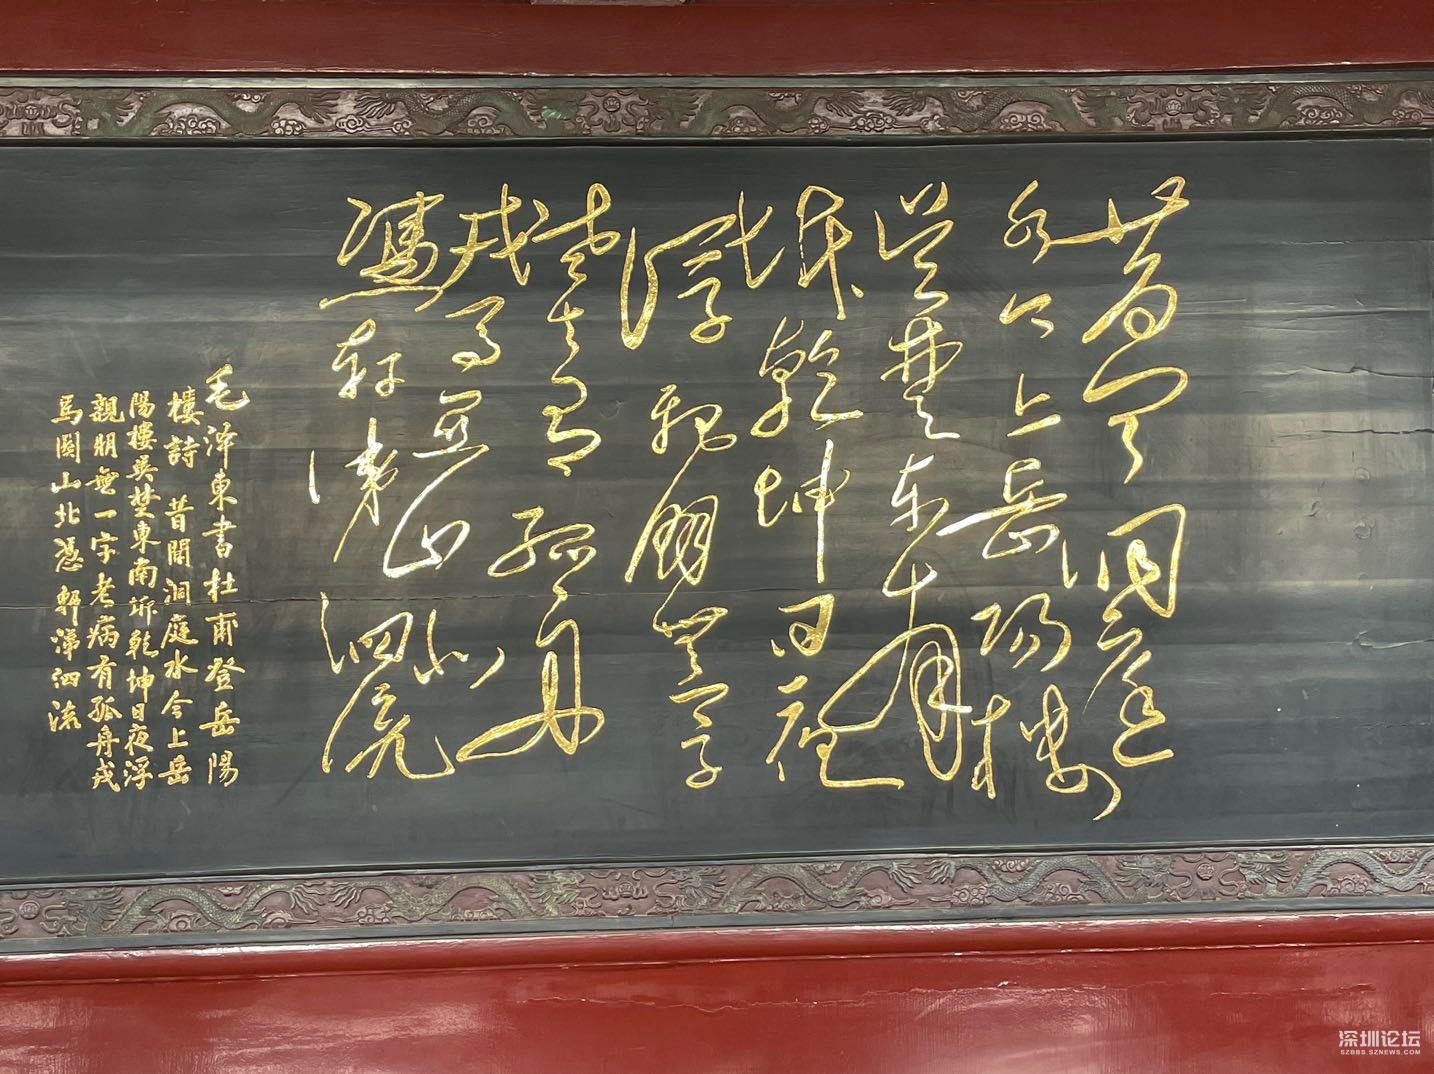 昔聞洞庭
水今上岳陽樓
吳楚東南
坼乾坤日夜
浮親朋無一字
老去有孤舟
戎馬關山北
憑軒涕泗流
毛澤東書杜甫登岳陽
樓詩 昔聞洞庭水今上岳
陽樓吳楚東南坼乾坤日夜浮
親朋無一字老病有孤舟戎
馬關山北憑軒涕泗流
深圳论坛
SZBBS.SZNEWS.COM